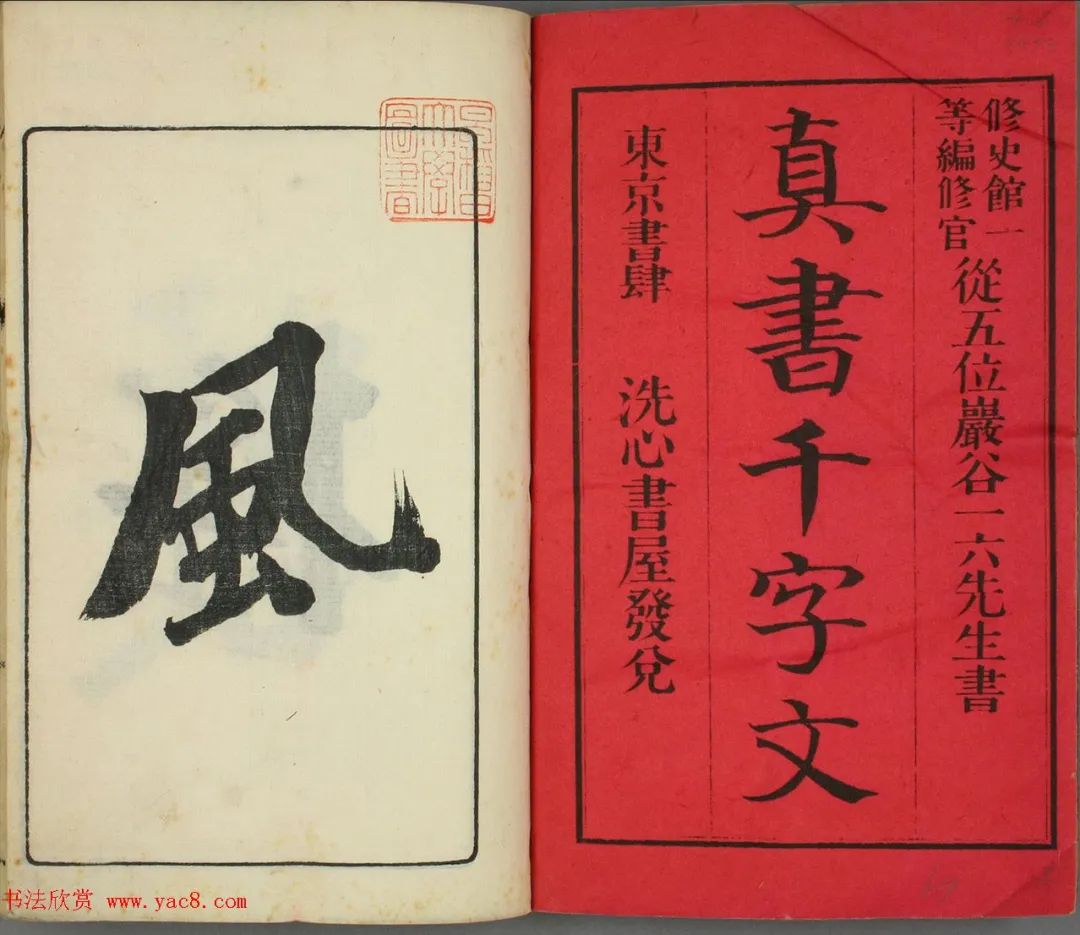 修史館一
等編修官
從五位巖谷一六先生書
真書千字文
東京書肆 洗心書屋發兌
早稲田
大學
圖書
風
书法欣赏 www.yac8.com